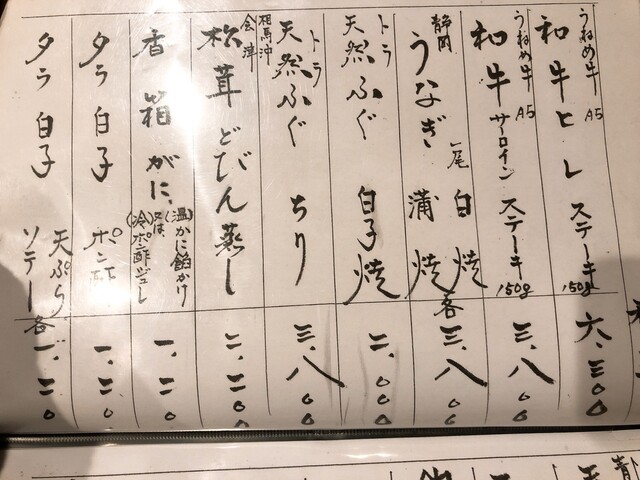 うねめ牛 A5
和牛ヒレ ステーキ 150g 六.三〇〇
うねめ牛 A5
和牛サーロイン ステーキ 150g 三.八〇〇
静岡
うなぎ 一尾 白焼
蒲焼 各三.八〇〇
トラ
天然ふぐ 白子焼 二.〇〇〇
トラ
天然ふぐ ちり 三.八〇〇
相馬沖
会津
松茸どびん蒸し 二.二〇〇
香箱がに、(温)かに餡かけ
又は、
(冷)ポン酢ジュレ 一.二〇〇
タラ白子 ポン酢 一.二〇〇
タラ白子 天ぷら
ソテー 各一.二〇〇